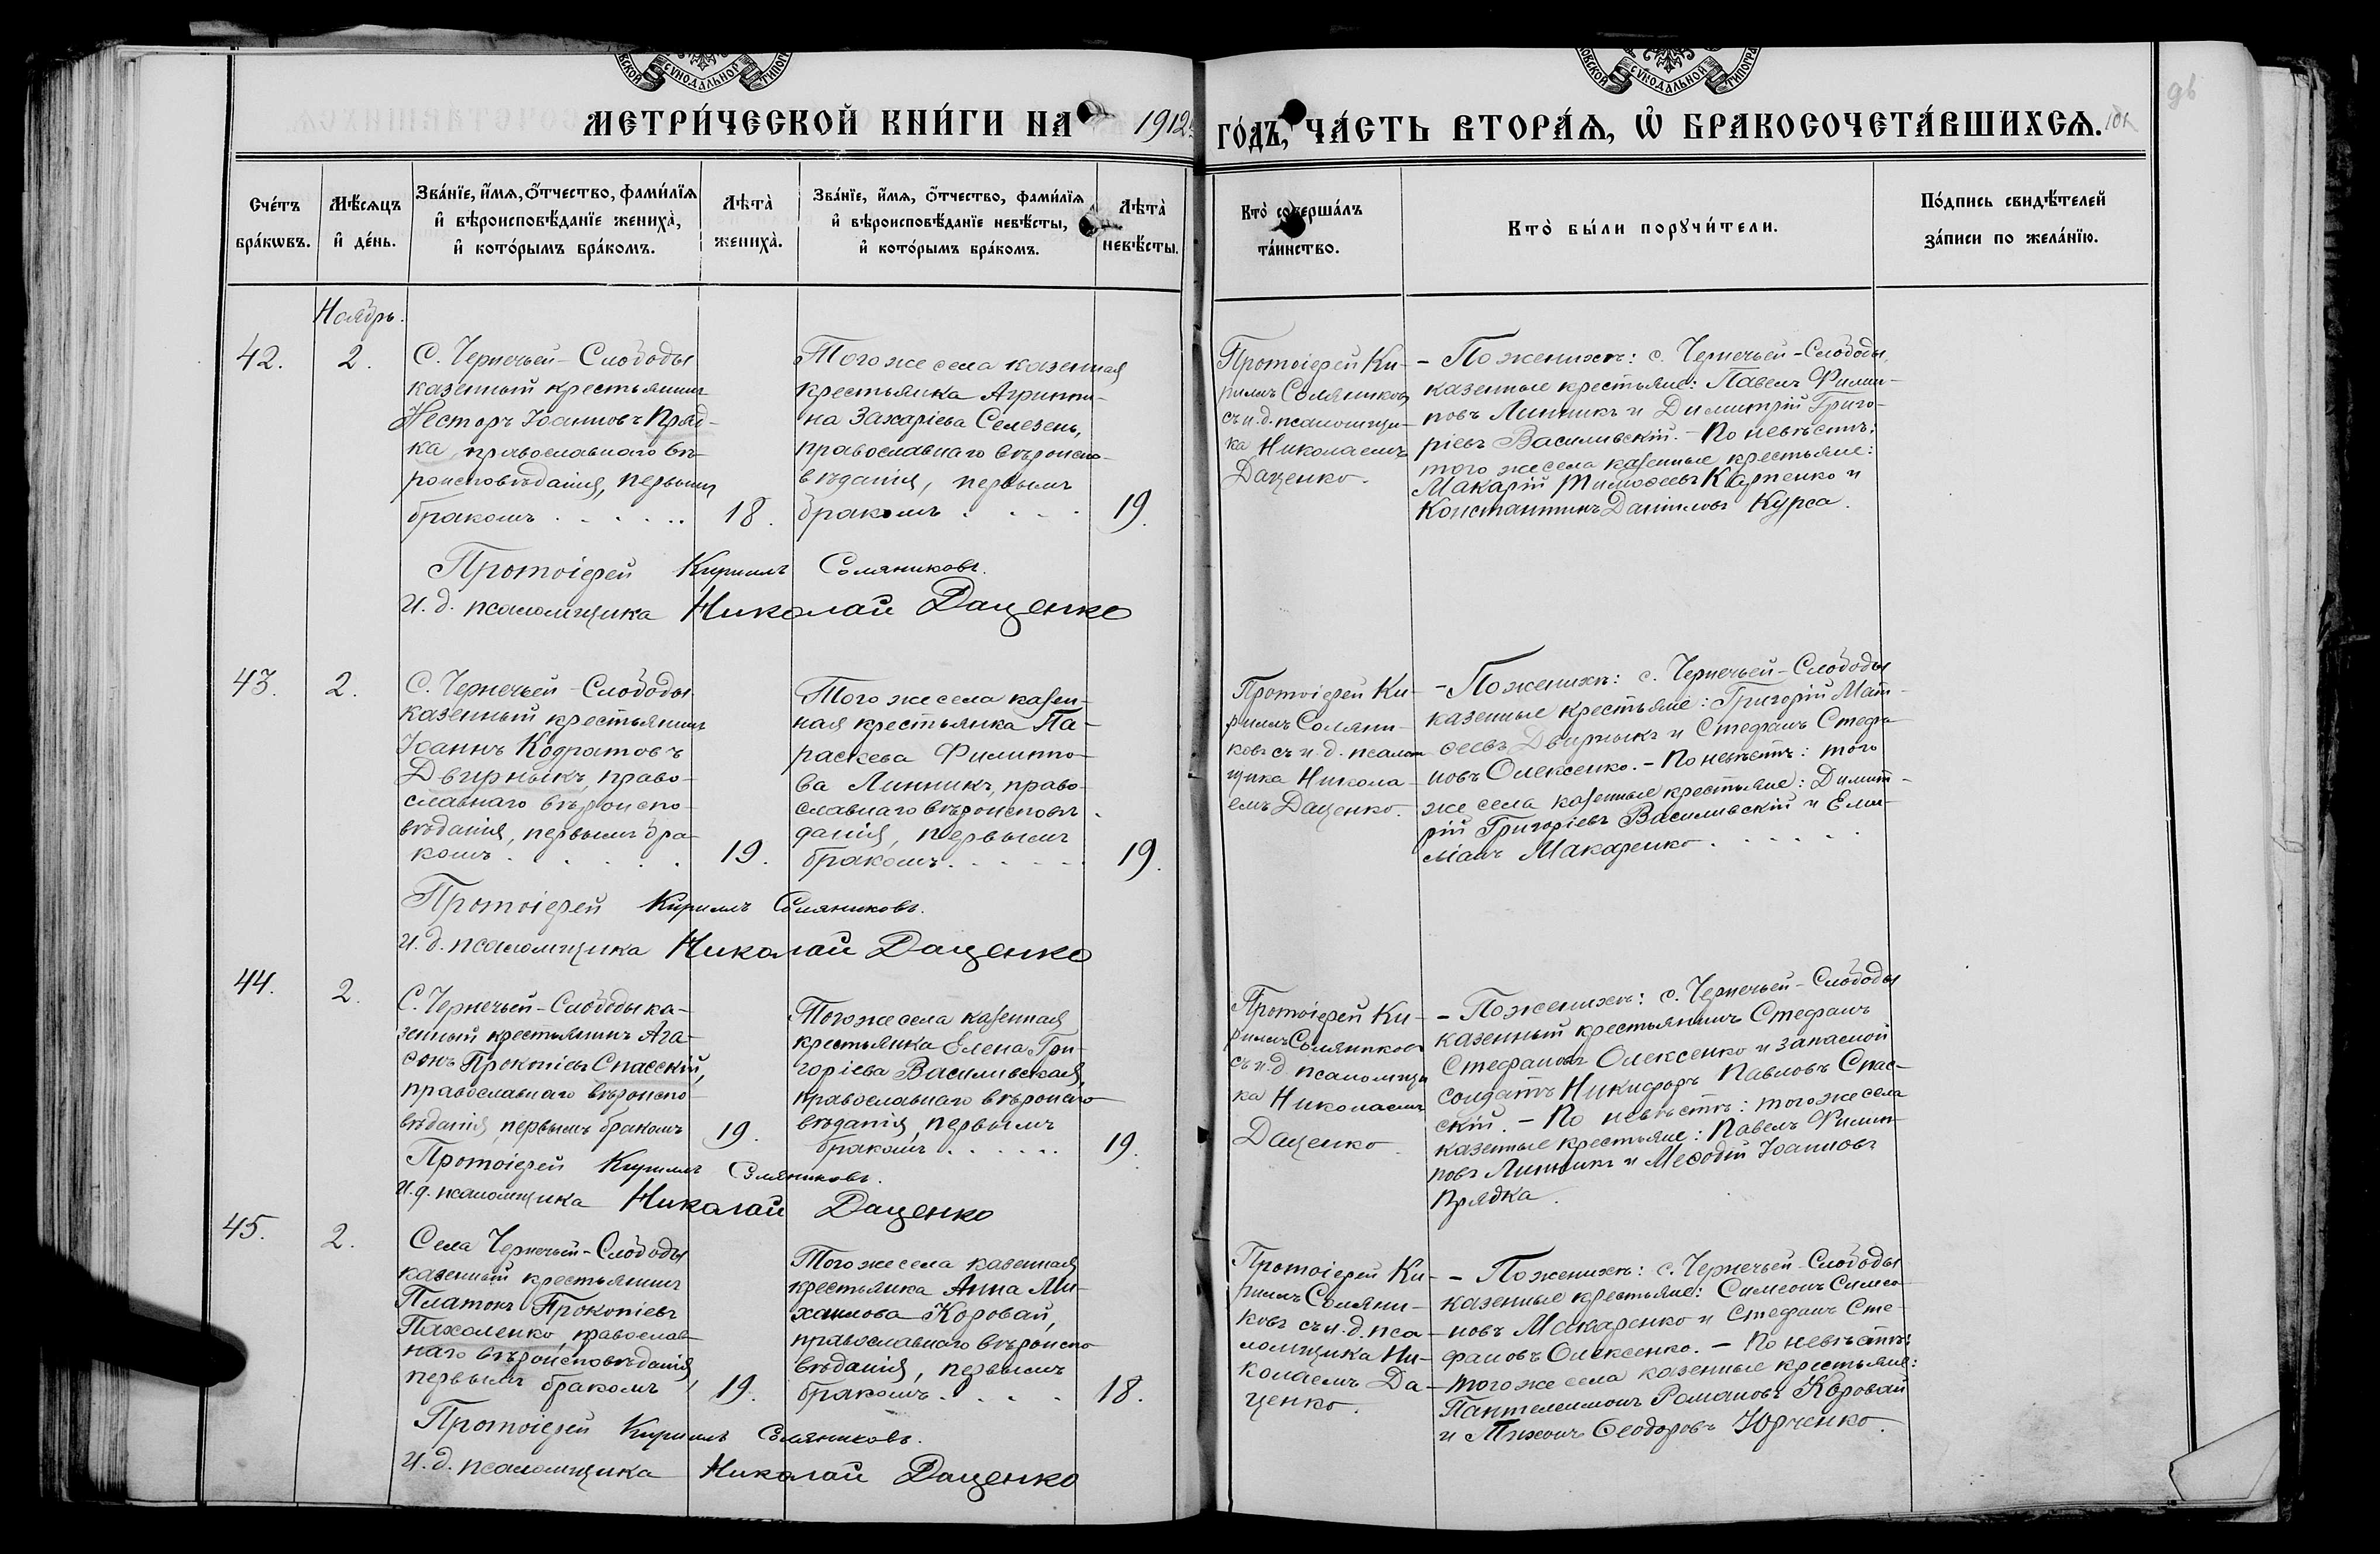 МЕТРИ́ЧЕСКОЙ КНИ́ГИ НА 1912
ГО́ДЪ, ЧА́СТЬ ВТОРА́Я, Ѡ БРАКОСОЧЕТА́ВШИХСЯ.
Сче́тъ бра́кѡвъ.
Мѣ́сяцъ и де́нь.
Зва́нїе, и́мя, ѻ́тчество, фами́лїя
и вѣроисповѣ́данїе жениха̀,
и кото́рымъ бра́комъ.
Лѣта̀ жениха̀.
Зва́нїе, и́мя, ѻ́тчество, фами́лїя
и вѣроисповѣ́данїе невѣ́сты,
и кото́рымъ бра́комъ.
Лѣта̀ невѣ́сты.
Кто̀ соверша́лъ та́инство.
Кто̀ бы́ли порꙋчи́тели.
По́дпись свидѣ́телей
за́писи по жела́нїю.
Ноябрь.
42.
2.
С. Чернечьей-Слободы
казенный крестьянинъ
Несторъ Іоанновъ Пряд-
ка, православнаго вѣ-
роисповѣданія, первымъ
бракомъ
18.
Того же села казенная
крестьянка Агриппи-
на Захаріева Селезень,
православнаго вѣроиспо-
вѣданія, первымъ
бракомъ
19.
Протоіерей Ки-
риллъ Соляниковъ
съ и.д. псаломщи-
ка Николаемъ
Даценко.
- По женихѣ: с. Чернечьей-Слободы,
казенные крестьяне: Павелъ Филип-
повъ Линникъ и Димитрій Григо-
ріевъ Василивскій. - По невѣстѣ:
того же села казенные крестьяне:
Макарій Тимоѳеевъ Карпенко и
Константинъ Даніиловъ Курса.
Протоіерей Кириллъ Соляниковъ.
И. д. псаломщика Николай Даценко
43.
2.
С. Чернечьей-Слободы
казенный крестьянинъ
Іоаннъ Кодратовъ
Двирныкъ, право-
славнаго вѣроиспо-
вѣданія, первымъ бра-
комъ
19.
Того же села казен-
ная крестьянка Па-
раскева Филиппо-
ва Линникъ, право-
славнаго вѣроисповѣ-
данія, первымъ
бракомъ
19.
Протоіерей Ки-
риллъ Соляни-
ковъ съ и.д. псалом
щика Никола-
емъ Даценко.
- По женихѣ: с. Чернечьей-Слободы
казенные крестьяне: Григорій Мат-
ѳеевъ Двирныкъ и Стефанъ Стефа-
новъ Олексенко. - По невѣстѣ: того
же села казенные крестьяне: Димит-
рій Григоріевъ Василивскій и Еми-
ліанъ Макаренко
Протоіерей Кириллъ Соляниковъ.
И. д. псаломщика Николай Даценко
44.
2.
С. Чернечьей-Слободы ка-
зенный крестьянинъ Ага-
ѳонъ Прокопіевъ Спасскій,
православнаго вѣроиспо-
вѣданія, первымъ бракомъ
19.
Того же села казенная
крестьянка Елена Гри-
горіева Василивская,
православнаго вѣроиспо-
вѣданія, первымъ
бракомъ
19.
Протоіерей Ки-
риллъ Соляниковъ
съ и.д. псаломщи
ка Николаемъ
Даценко.
- По женихѣ: с. Чернечьей-Слободы
казенный крестьянинъ Стефанъ
Стефановъ Олексенко и запасной
солдатъ Никифоръ Павловъ Спас-
скій. - По невѣстѣ: того же села
казенные крестьяне: Павелъ Филип-
повъ Линникъ и Меѳодій Іоанновъ
Прядка.
Протоіерей Кириллъ Соляниковъ.
И. д. псаломщика Николай Даценко
45.
2.
Села Чернечьей-Слободы
казенный крестьянинъ
Платонъ Прокопіевъ
Пахоленко, православ-
наго вѣроисповѣданія,
первымъ бракомъ
19.
Того же села казенная
крестьянка Анна Ми-
хаилова Коровай,
православнаго вѣроиспо-
вѣданія, первымъ
бракомъ
18.
Протоіерей Ки-
риллъ Соляни-
ковъ съ и.д. пса-
ломщика Ни-
колаемъ Да-
ценко.
- По женихѣ: с. Чернечьей-Слободы
казенные крестьяне: Симеонъ Симео-
новъ Макаренко и Стефанъ Сте-
фановъ Олексенко. - По невѣстѣ:
того же села казенные крестьяне:
Пантелеимонъ Романовъ Коровай
и Тихонъ Ѳеодоровъ Юрченко.
Протоіерей Кириллъ Соляниковъ.
И. д. псаломщика Николай Даценко